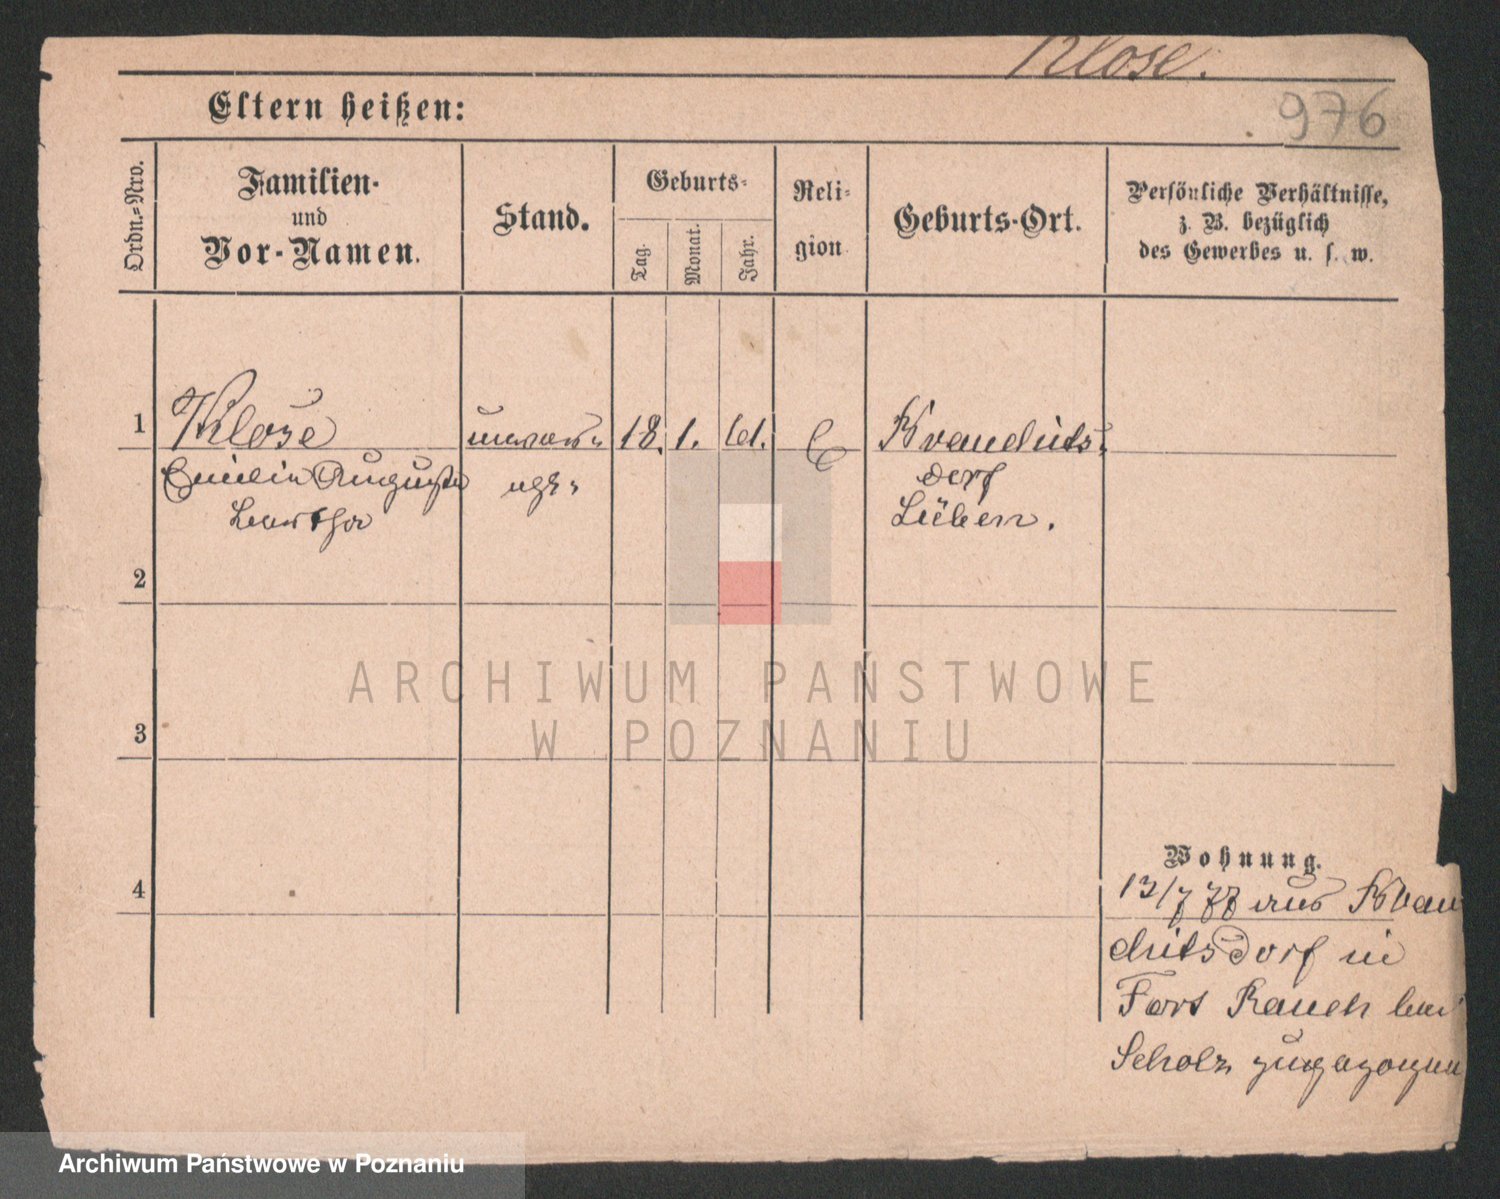 Klose.
Eltern heißen:
976
Ordn.=Nro.
Familien-
und
Vor-Namen.
Stand.
Geburts-
Tag.
Monat.
Jahr.
Reli-
gion
Geburts-Ort.
Persönliche Verhältnisse,
z. B. bezüglich
des Gewerbes u. s. w.
1
Klose
unver-
18. 1. 61.
Emilie Auguste
Bertha
dorf
Lüben.
2
ARCHIWUM PAŃSTWOWE
W POZNANIU
3
4
Wohnung.
aus
in
Fort Rauch bei
Scholz zugezogen
Archiwum Państwowe w Poznaniu